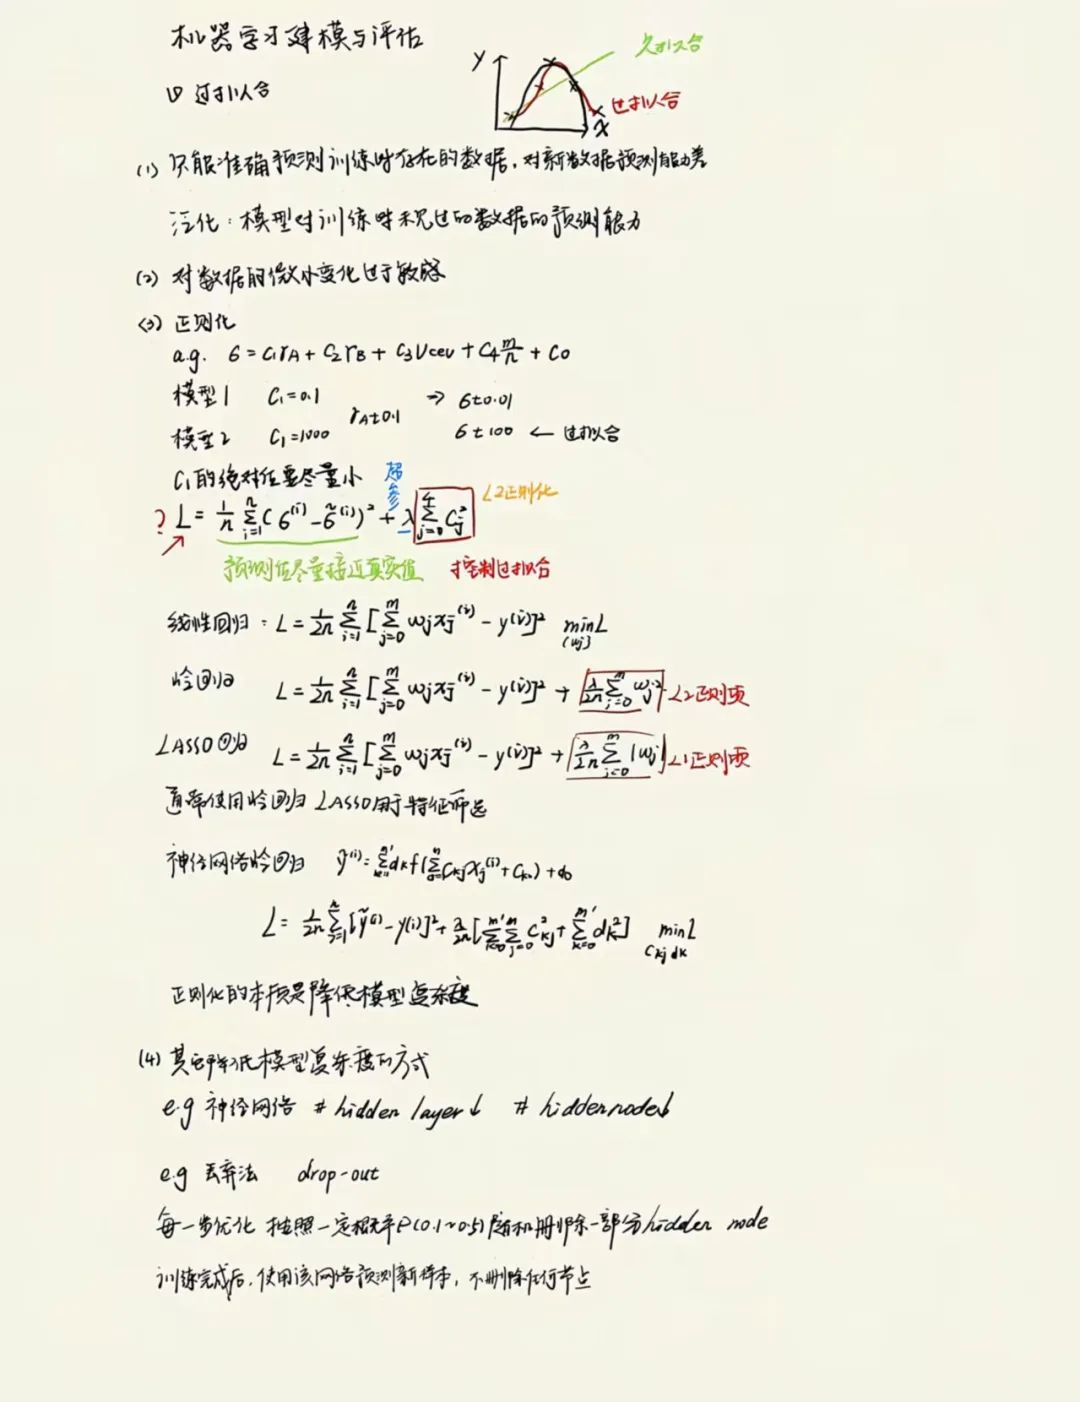 机器学习建模与评估
Y
欠拟合
1) 过拟合
过拟合
X
(1) 只能准确预测训练时存在的数据，对新数据预测能力差
泛化：模型对训练时未见过的数据的预测能力
(2) 对数据的微小变化过于敏感
(3) 正则化
a.g. 6 = C1rA + C2rB + C3Vcell + C4 m/n + C0
模型1 C1=0.1 → 6±0.01
rA±0.1
模型2 C1=1000 6±100 ← 过拟合
C1的绝对值要尽量小
超参
L2正则化
? L = 1/n Σ(i=1→n) (6^(i) - 6̃^(i))² + λ Σ(j=0→4) Cj²
预测值尽量接近真实值 控制过拟合
线性回归： L = 1/2n Σ(i=1→n) [Σ(j=0→m) wjxj^(i) - y^(i)]² min L {wj}
岭回归 L = 1/2n Σ(i=1→n) [Σ(j=0→m) wjxj^(i) - y^(i)]² + λ/2n Σ(j=0→m) wj² L2正则项
LASSO回归 L = 1/2n Σ(i=1→n) [Σ(j=0→m) wjxj^(i) - y^(i)]² + λ/2n Σ(j=0→m) |wj| L1正则项
通常使用岭回归 LASSO用于特征筛选
神经网络岭回归 ỹ^(i) = Σ(k=1→m') dk f(Σ(j=1→m) Ckj xj^(i) + Ck0) + d0
L = 1/2n Σ(i=1→n) [ỹ^(i) - y(i)]² + λ/2n [Σ(k=0→m') Σ(j=0→m) Ckj² + Σ(k=0→m') dk²] min L Ckj dk
正则化的本质是降低模型复杂度
(4) 其它降低模型复杂度的方式
e.g 神经网络 # hidden layer↓ # hidden node↓
e.g 丢弃法 drop-out
每一步优化 按照一定概率P(0.1~0.5)随机删除一部分hidden node
训练完成后，使用该网络预测新样本，不删除任何节点